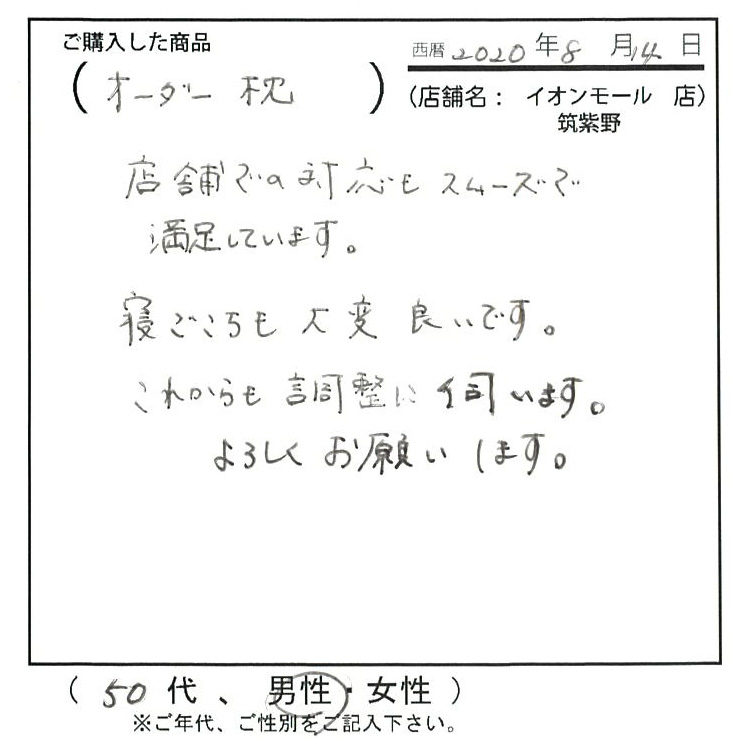 ご購入した商品
西暦 2020 年 8 月 14 日
(オーダー枕)
(店舗名: イオンモール 店)
筑紫野
店舗での対応もスムーズで
満足しています。
寝ごこちも大変良いです。
これからも調整に伺います。
よろしくお願いします。
( 50 代 、 男性・女性 )
※ご年代、ご性別をご記入下さい。